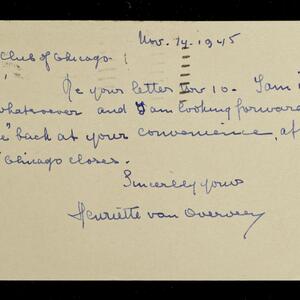 Nov. 14-1945
Club of Chicago
Re your letter Nov 10. I am i
whatsoever and I am looking forward
e" back at your convenience, af
"Chicago closes.
Sincerely yours
Henriette van